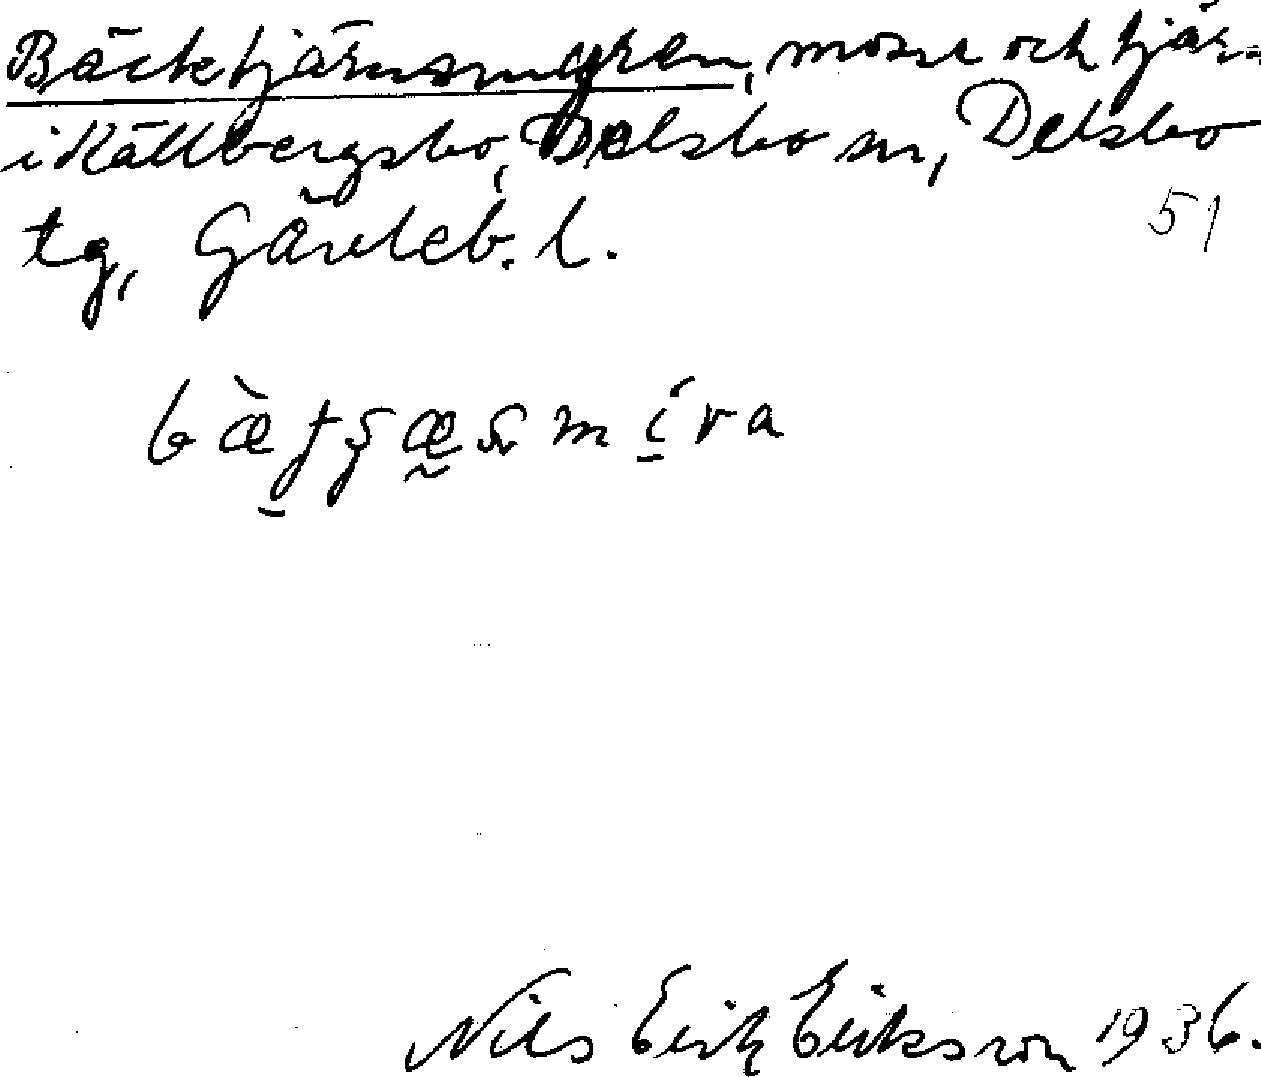 Bäcktjärnsmyren, mosse och tjär-
i Källbergsbo, Delsbo sn, Delsbo
tg, Gävleb. l.
51
Nils Erik Eriksson 1936.